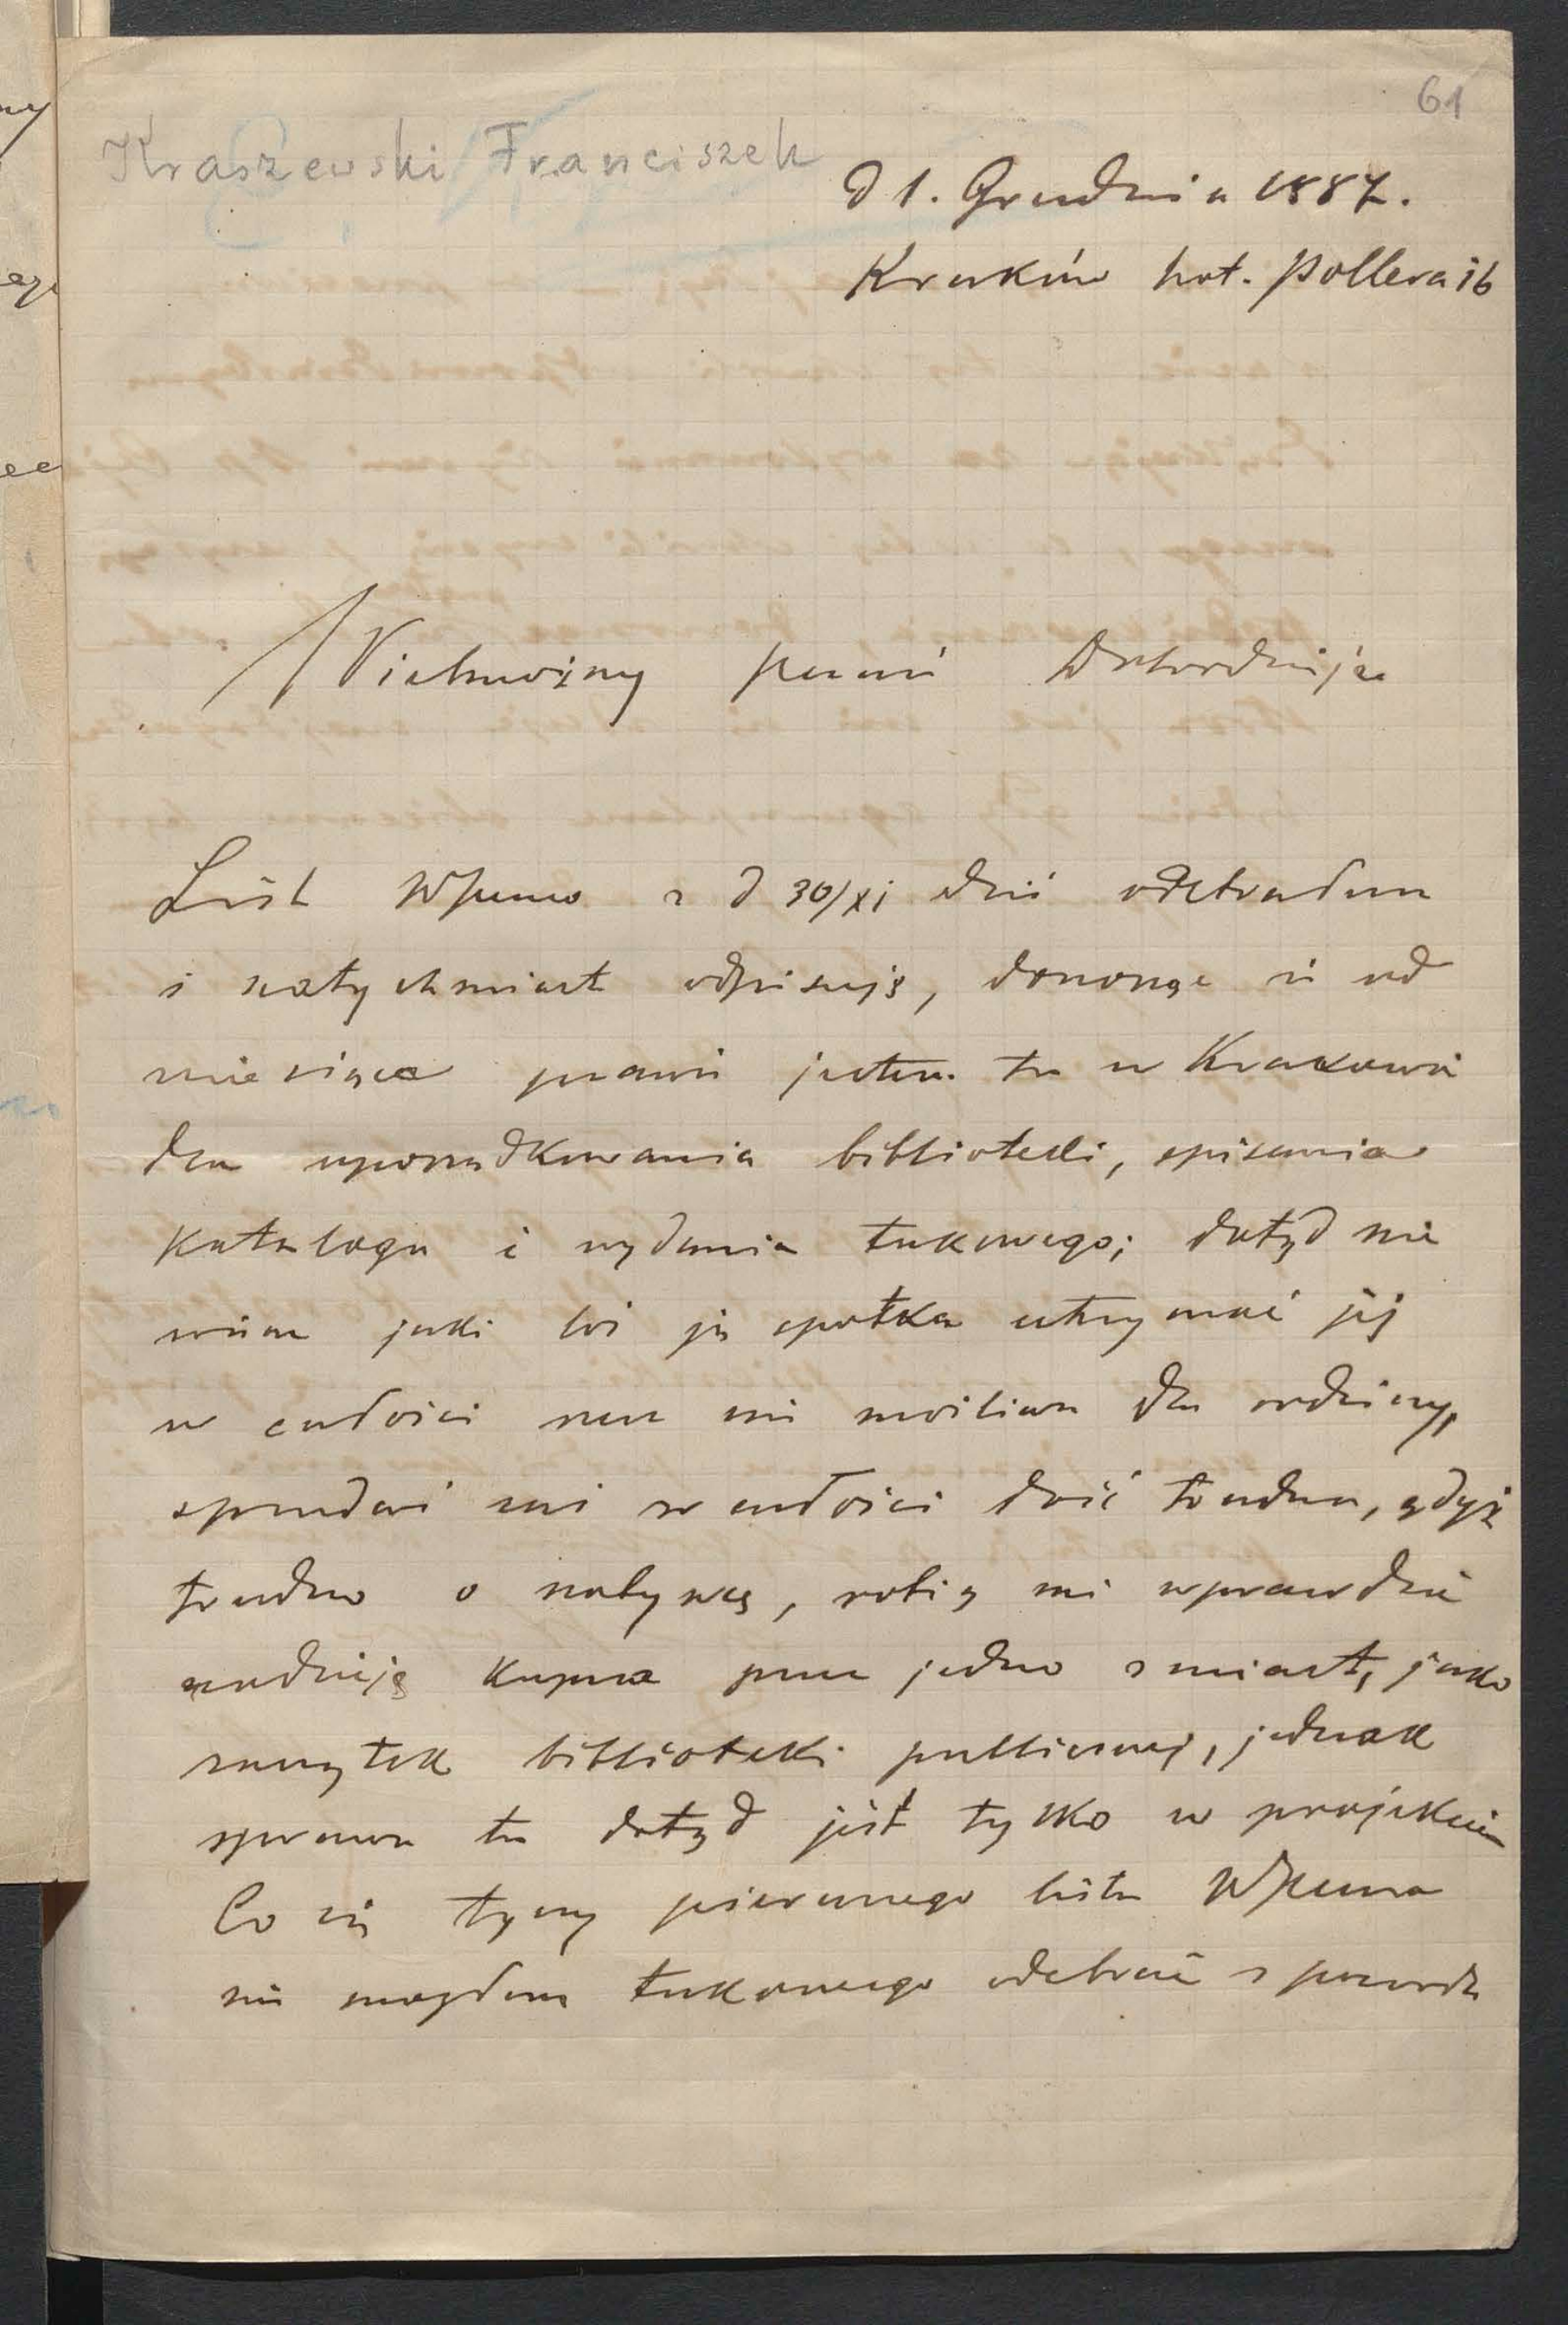 61
Kraszewski Franciszek
d 1. Grudnia 1887.
Kraków hot. Pollera 16
Wielmożny panie Dobrodzieju
List WPana z d 30/XI dziś odebrałem
i natychmiast odpisuję, donosząc iż od
miesiąca prawie jestem tu w Krakowie
dla uporządkowania biblioteki, spisania
Katalogu i wydania takowego; dotąd nie
wiem jaki los ją spotka utrzymać jej
w całości rzecz nie możliwa dla rodziny,
sprzedać zaś w całości dość trudno, gdyż
trudno o nabywcę, robią mi wprawdzie
nadzieję kupna przez jedno z miast, jako
zaczątek biblioteki publicznej, jednak
sprawa ta dotąd jest tylko w projekcie
Co się tyczy pierwszego listu WPana
nie mogłem takowego odebrać z powodu